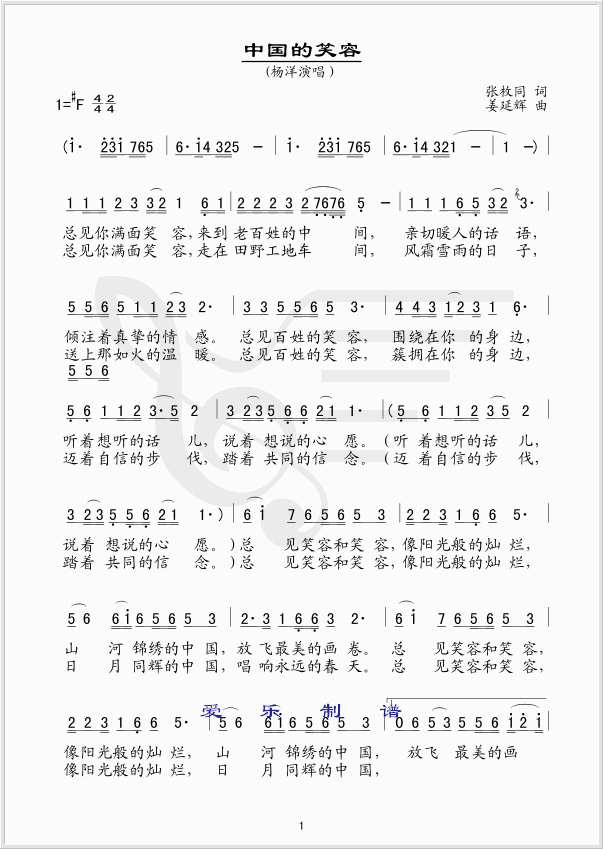 中国的笑容
(杨洋演唱)
张枚同 词
1=♯F 4/4 2/4
姜延辉 曲
(i· 231 765 | 6·i4 325 － | i· 231 765 | 6·i4 321 － | 1 －)
1 1 1 2 3 3 2 1 6 1 | 2 2 2 3 2 7676 5 － | 1 1 1 6 5 3 2 3·
总见你满面笑 容,来到 老百姓的中 间, 亲切暖人的话 语,
总见你满面笑 容,走在 田野工地车 间, 风霜雪雨的日 子,
5 5 6 5 1 1 2 3 2· | 3 3 5 5 6 5 3· | 4 4 3 1 2 3 1 6·
倾注着真挚的情 感。 总见百姓的笑 容, 围绕在你 的身 边,
送上那如火的温 暖。 总见百姓的笑 容, 簇拥在你 的身 边,
5 5 6
5 6 1 1 2 3·5 2 | 3 2 3 5 6 6 2 1 1· | (5 6 1 1 2 3 5 2
听着想听的话 儿, 说着 想说的心 愿。(听 着想听的话 儿,
迈着自信的步 伐, 踏着 共同的信 念。(迈 着自信的步 伐,
3 2 3 5 5 6 2 1 1·) | 6 i 7 6 5 6 5 3 | 2 2 3 1 6 6 5·
说着 想说的心 愿。)总 见笑容和笑 容,像阳光般的灿 烂,
踏着 共同的信 念。)总 见笑容和笑 容,像阳光般的灿 烂,
5 6 6 i 6 5 6 5 3 | 2·3 1 6 6 3 2· | 6 i 7 6 5 6 5 3
山 河 锦绣的中 国, 放 飞最美的画 卷。 总 见笑容和笑 容,
日 月 同辉的中 国, 唱 响永远的春 天。 总 见笑容和笑 容,
爱 乐 制 谱
2 2 3 1 6 6 5· | 5 6 6 i 6 5 6 5 3 | 0 6 5 3 5 5 6 i 2 i
像阳光般的灿 烂, 山 河 锦绣的中 国, 放飞 最美的画
像阳光般的灿 烂, 日 月 同辉的中 国,
1